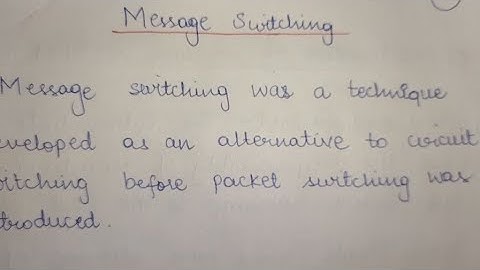 Message Switching
Message switching was a technique
eveloped as an alternative to circuit
itching before packet switching was
troduced.